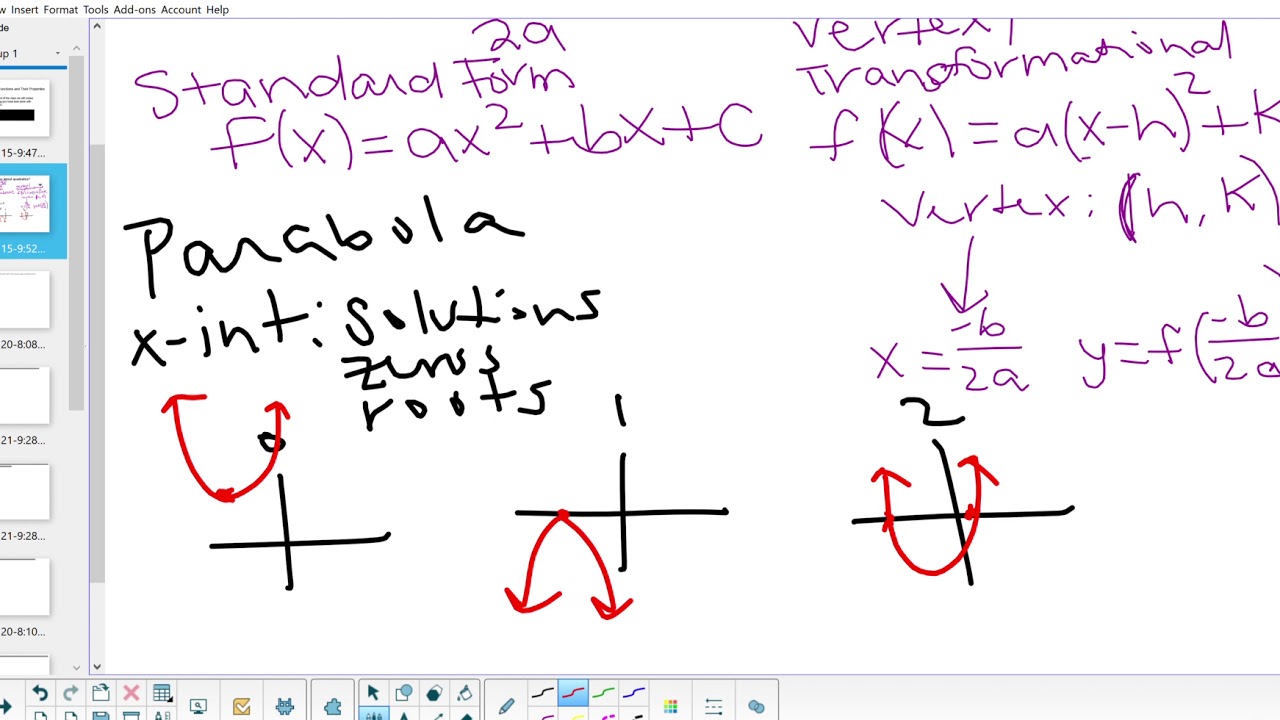 w Insert Format Tools Add-ons Account Help
de
up 1
unctions and Their Properties
15-9:47...
15-9:52...
20-8:08...
21-9:28...
21-9:28...
20-8:10...
2a
Standard Form
f(x)=ax²+bx+c
Vertex/
Transformational
f(x)=a(x-h)²+K
vertex: (h, K)
x = -b/2a y=f(-b/2a
Parabola
x-int: Solutions
zeros
roots
0 1 2